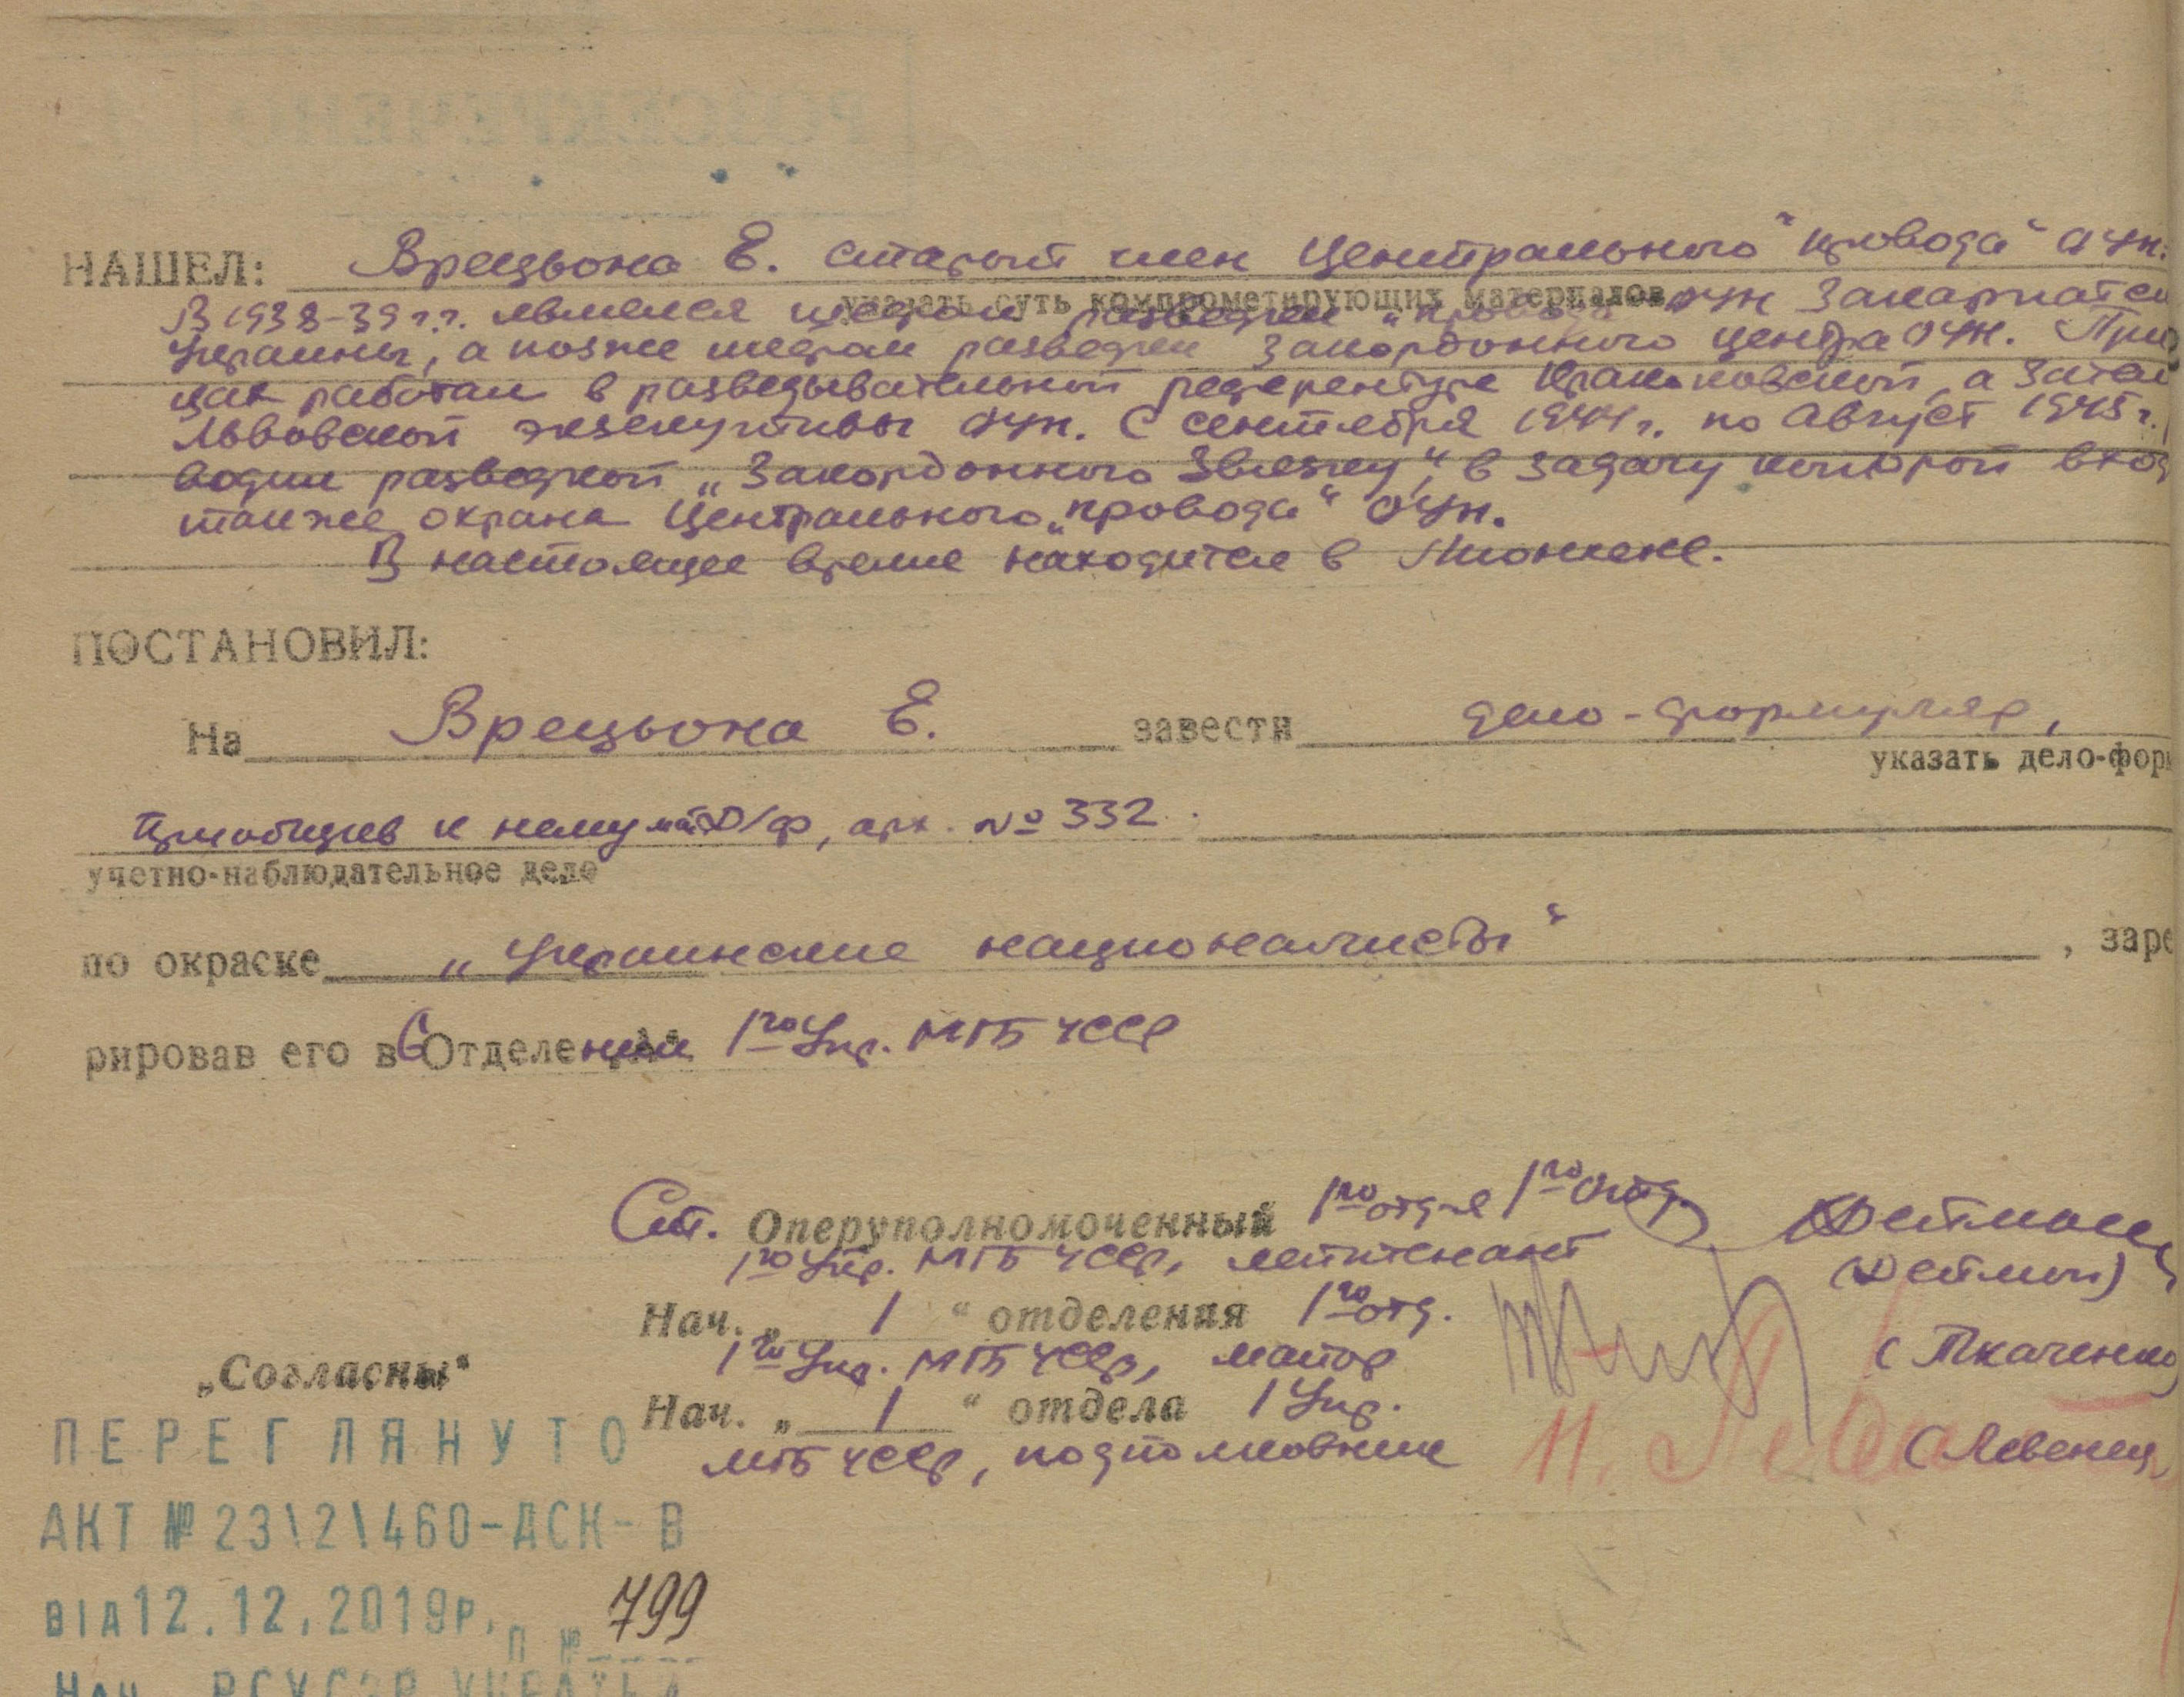 НАШЕЛ: Врецьона Е. старый член Центрального "провода" ОУН.
указать суть компрометирующих материалов
В 1938-39 г.г. являлся шефом разведки "провода" ОУН Закарпатск
Украины, а позже шефом разведки Закордонного центра ОУН. При
цах работал в разведывательной референтуре Краковской, а затем
Львовской экзекутивы ОУН. С сентября 1944 г. по август 1945 г.
водил разведкой „Закордонного Звязку", в задачу которой вход
также охрана Центрального „провода" ОУН.
В настоящее время находится в Мюнхене.
ПОСТАНОВИЛ:
На Врецьона Е. завести дело-формуляр,
указать дело-форм
приобщив к нему Д/ф, арх. № 332.
учетно-наблюдательное дело
по окраске „Украинские националисты" , заре
рировав его в 6 Отделении 1го Упр. МГБ УССР
Ст. Оперуполномоченный 1го отд-я 1го Отд.
1го Упр. МГБ УССР, лейтенант
(Дейтман)
Нач. „ 1 " отделения 1го отд.
1го Упр. МГБ УССР, майор
(Ткаченко)
„Согласны"
Нач. „ 1 " отдела 1 Упр.
МГБ УССР, подполковник
(Левеня
ПЕРЕГЛЯНУТО
АКТ № 23\2\460-ДСК-В
ВІД 12.12.2019р. П № 799